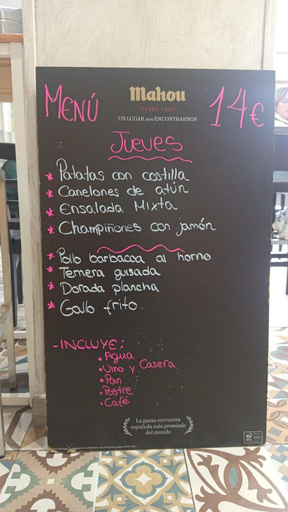 MENÚ
Mahou
DESDE 1890
UN LUGAR para ENCONTRARNOS
14€
Jueves
* Patatas con costilla
* Canelones de atún
* Ensalada Mixta
* Champiñones con jamón
* Pollo barbacoa al horno
* Ternera guisada
* Dorada plancha
* Gallo frito.
- INCLUYE:
• Agua
• Vino y Casera
• Pan
• Postre
• Café
La gama cervecera
española más premiada
del mundo